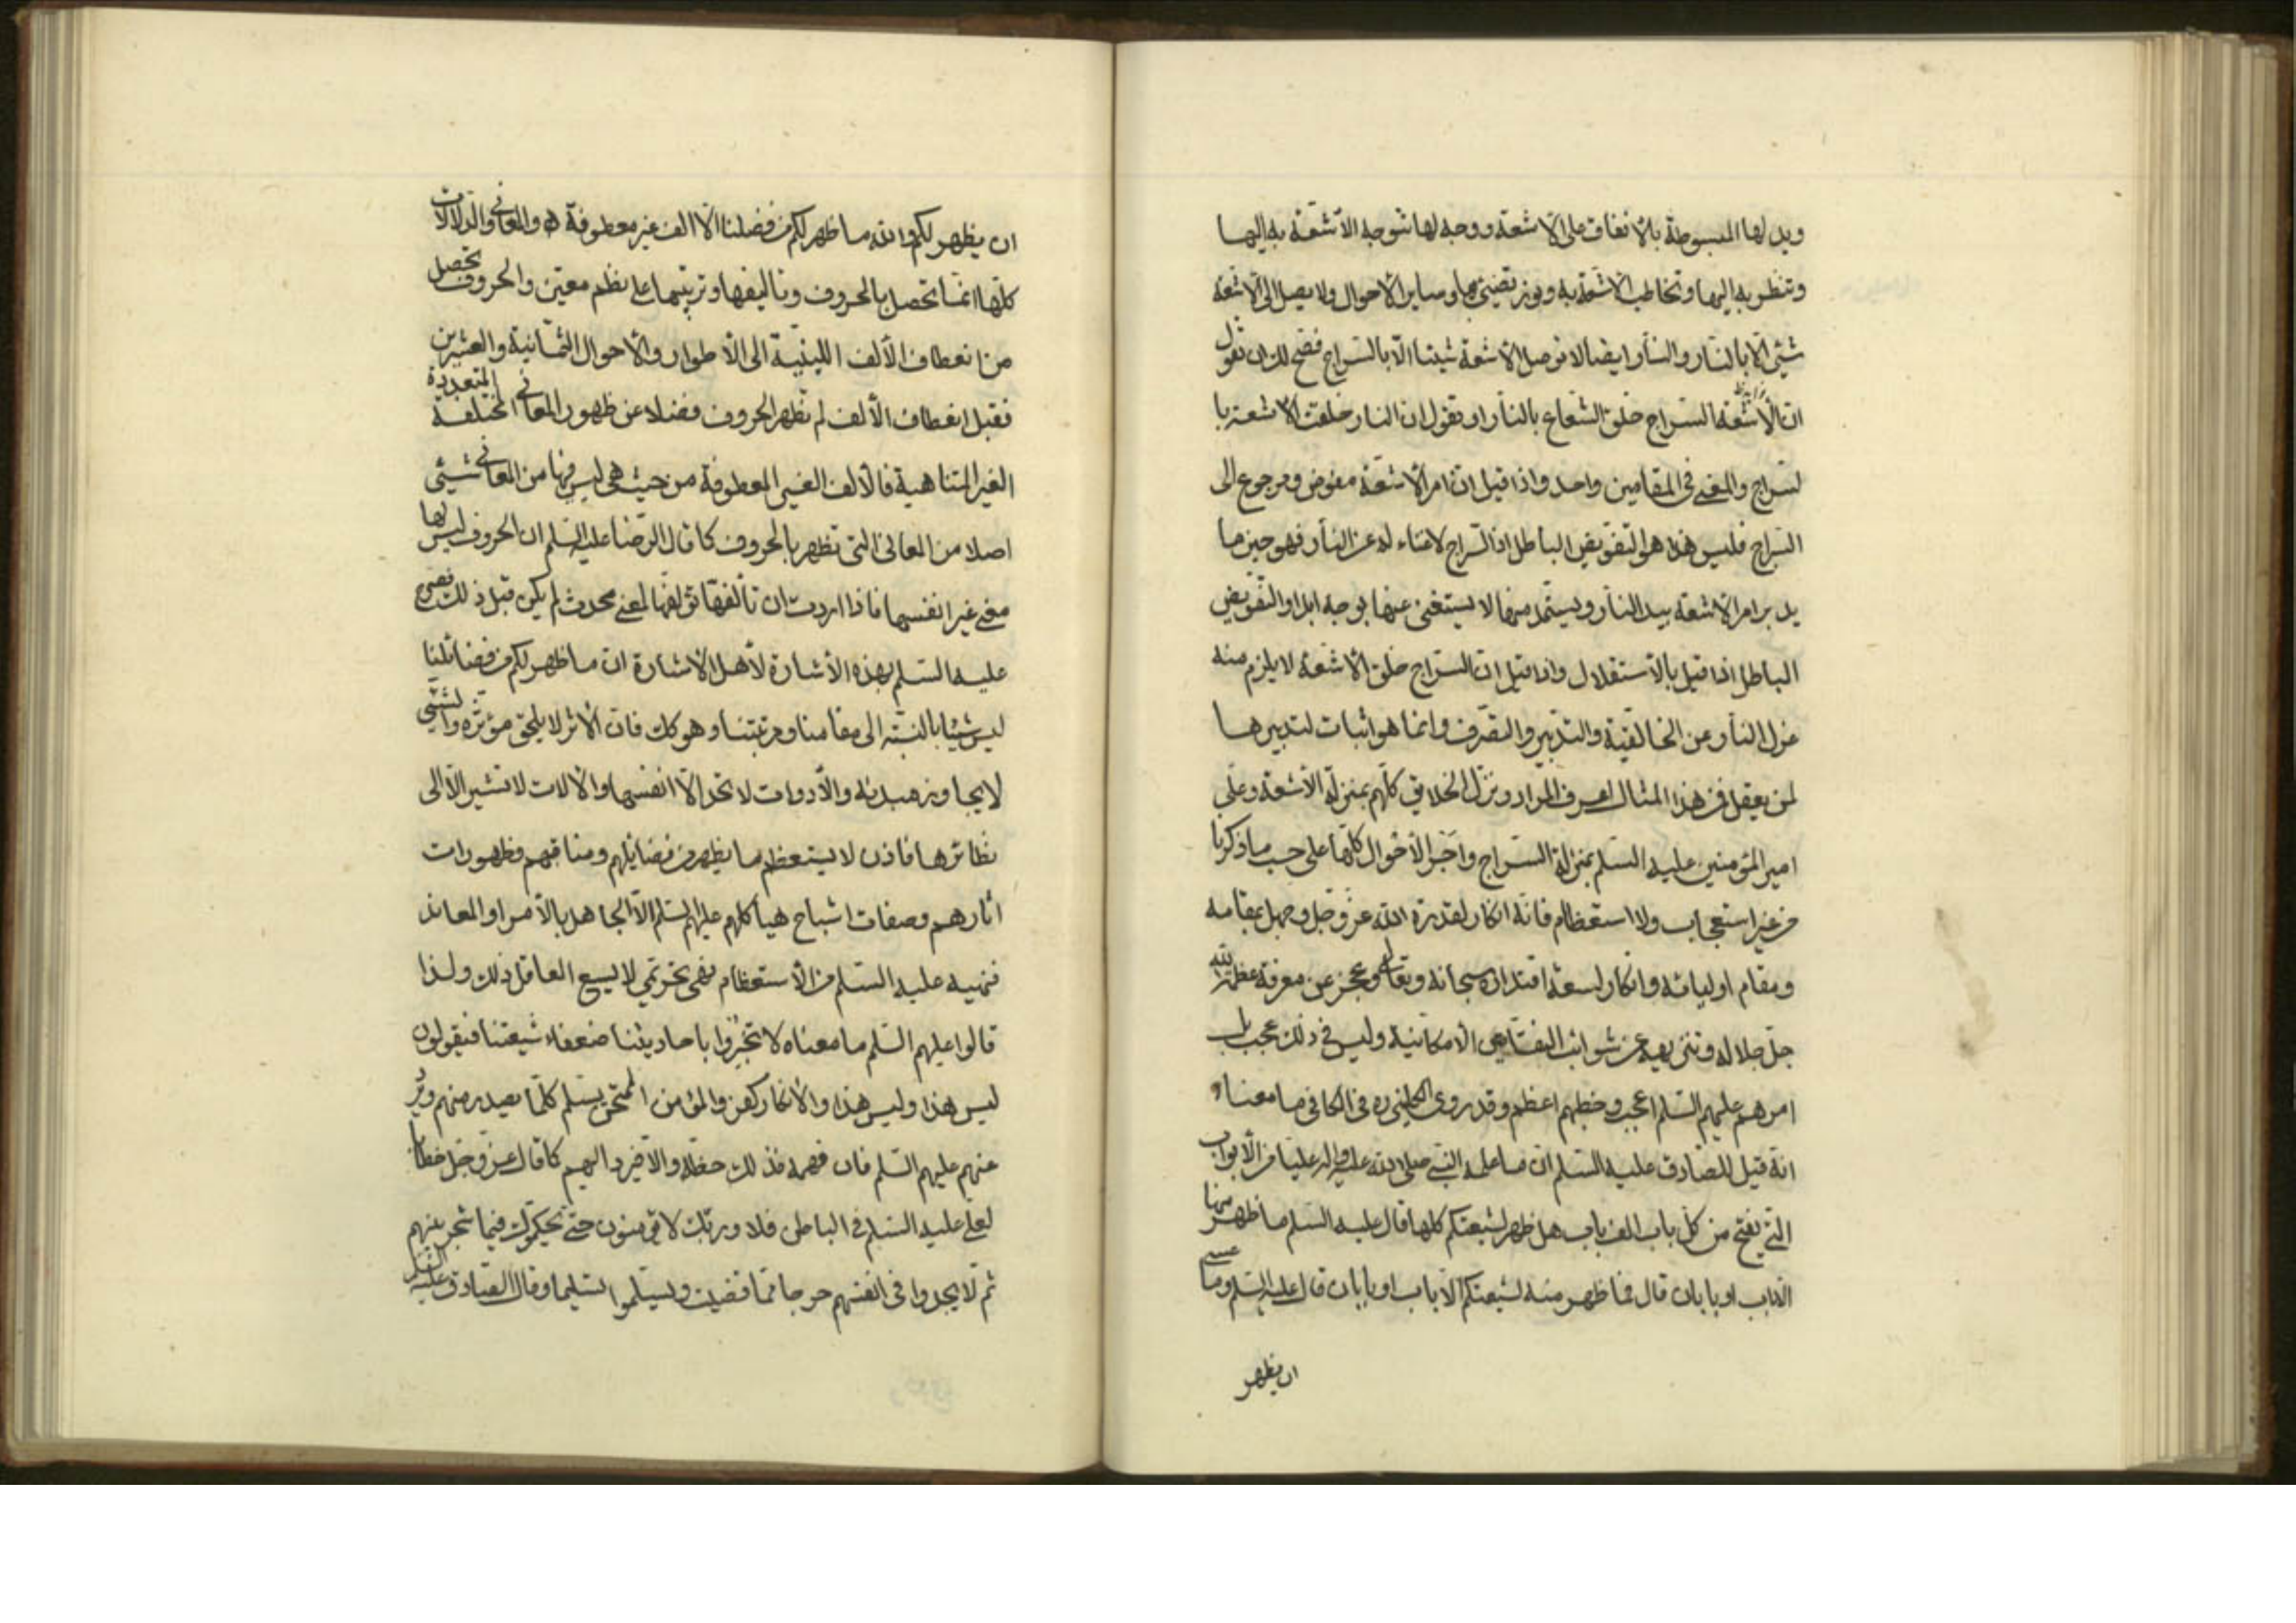 ويدلها المبسوطة بالانفاق على الاشعة ووجه لها تتوجه الاشعة به اليها
وتنظر به اليها وتخاطب الاشعة به وبوز تقتضى بها وساير الاحوال ولا يصل الى الاشعة
شيئ الا بالنار والنار ايضا لا توصل الاشعة شيئا الا بالسراج فصح لك ان تقول
ان الاشعة السراج خلق الشعاع بالنار او تقول ان النار خلقت الاشعة با
لسراج والمعنى فى المقامين واحد واذا قيل ان امر الاشعة مفوض ومرجوع الى
السراج فليس هذا هو التفويض الباطل اذ السراج لا غناء له عن النار فهو حين ما
يدبر امر الاشعة بيد النار ويستمد منها لا يستغنى عنها بوجه ابدا والتفويض
الباطل اذا قيل بالاستقلال واذا قيل ان السراج خلق الاشعة لا يلزم منه
عزل النار عن الخالقية والتدبير والتصرف وانما هو اثبات لتدبيرها
لمن يعقل فمن هذا المثال اعرف المراد ونزل الخلايق كلهم بمنزلة الاشعة وعلى
امير المؤمنين عليه السلم بمنزلة السراج واجر الاحوال كلها على حسب ما ذكرنا
من غير استعجاب ولا استعظام فانه انكار لقدرة الله عز وجل وجهل بمقامه
ومقام اوليائه وانكار لسعة اقتداره سبحانه وتعالى وعجز عن معرفة عظمة الله
جل جلاله وتنزيهه عن شوائب النقايص الامكانية وليس فى ذلك عجب بل
امرهم عليهم السلم اعجب وخطبهم اعظم وقد روى الكلينى ره فى الكافى ما معناه
انه قيل للصادق عليه السلم ان ما علمه النبى صلى الله عليه واله عليا من الابواب
التى يفتح من كل باب الف باب هل ظهر لشيعتكم كلها قال عليه السلم ما ظهر منها
الا باب او بابان قال فما ظهر منه لشيعتكم الا باب او بابان قال عليه السلم وما عسى
ان يظهر
ان يظهر لكم والله ما ظهر لكم من فضلنا الا الف غير معطوفة ه والمعانى والدلالات
كلها انما تحصل بالحروف وتاليفها وترتيبها على نظم معين والحروف تحصل
من انعطاف الالف اللينية الى الاطوار والاحوال الثمانية والعشرين
فقبل انعطاف الالف لم تظهر الحروف فضلا عن ظهور المعانى المختلفة المتعددة
الغير المتناهية فالالف الغير المعطوفة من حيث هى ليس فيها من المعانى شيئ
اصلا من المعانى التى تظهر بالحروف كما قال الرضا عليه السلم ان الحروف ليس لها
معنى غير انفسها فاذا اردت ان تالفها تؤلفها لمعنى محدث لم يكن قبل ذلك
عليه السلم بهذه الاشارة لاهل الاشارة ان ما ظهر لكم من فضائلنا
ليس شيئا بالنسبة الى مقامنا ومرتبتنا وهو كك فان الاثر لا يلحق مؤثره والشيئ
لا يجاوز مبدئه والادوات لا تحد الا انفسها والالات لا تشير الا الى
نظائرها فاذن لا يستعظم ما يظهر من فضايلهم ومناقبهم وظهورات
اثارهم وصفات اشباح هياكلهم عليهم السلم الا الجاهل بالامر او المعاند
فنهيه عليه السلم من الاستعظام نهى تحريمى لا يسع العاقل ذلك ولذا
قالوا عليهم السلم ما معناه لا تخبروا باحاديثنا ضعفاء شيعتنا فيقولون
ليس هذا وليس هذا والانكار كفر والمؤمن الممتحن يسلم كلما يصدر منهم ويرد
عنهم عليهم السلم فان فهمه فذلك حظه والا فيرد اليهم كما قال عز وجل خطابا
لعلى عليه السلم فى الباطن فلا وربك لا يؤمنون حتى يحكموك فيما شجر بينهم
ثم لا يجدوا فى انفسهم حرجا مما قضيت ويسلموا تسليما وقال الصادق عليه السلم